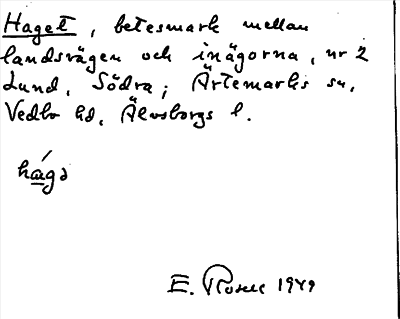 Haget, betesmark mellan
landsvägen och inägorna, nr 2
Lund, Södra; Ärtemarks sn,
Vedbo hd, Älvsborgs l.
hágə
E. 1949